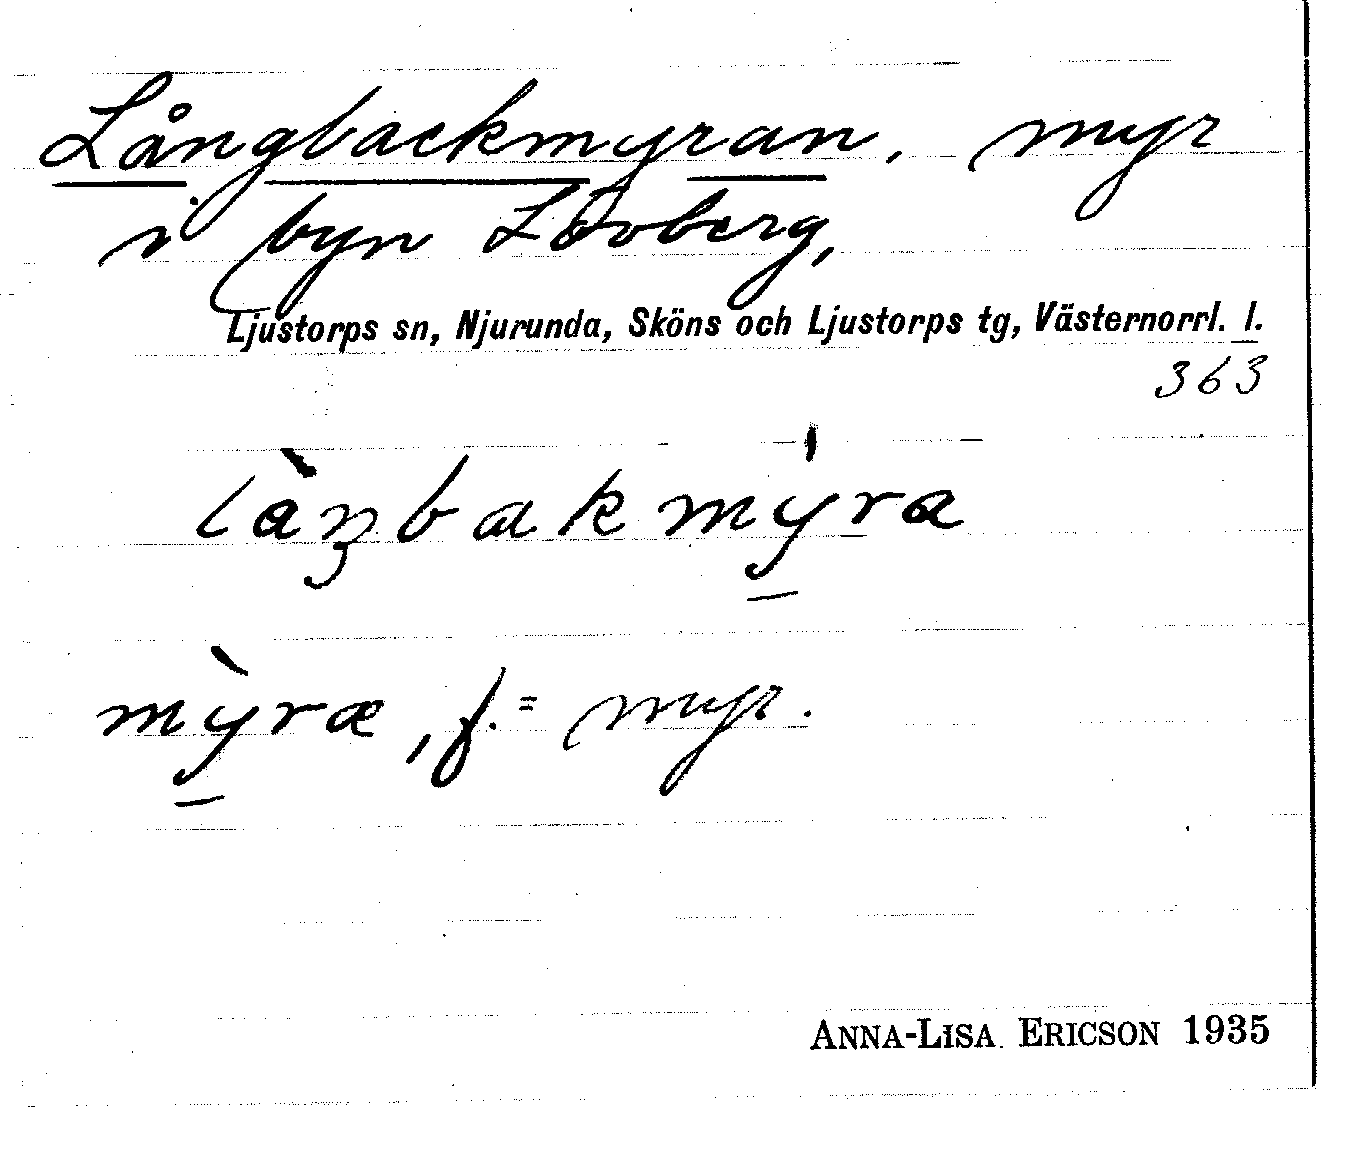 Långbackmyran, myr
i byn Lövberg,
Ljustorps sn, Njurunda, Sköns och Ljustorps tg, Västernorrl. l.
363
làŋbakmy̱ra
mỳ̱ræ, f. = myr.
ANNA-LISA ERICSON 1935